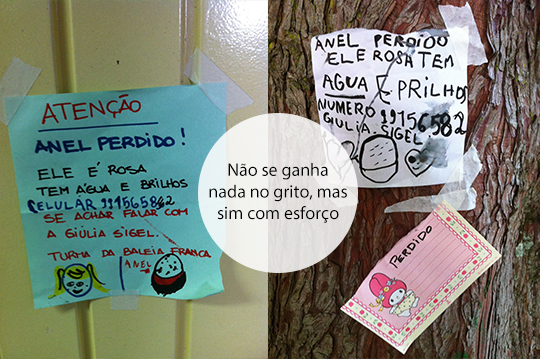 ATENÇÃO
ANEL PERDIDO!
ELE É ROSA
TEM AGUA E BRILHOS
CELULAR 991565862
SE ACHAR FALAR COM
A GIÚLIA SIGEL.
TURMA DA BALEIA FRANCA
ANEL
Não se ganha
nada no grito, mas
sim com esforço
ANEL PERDIDO
ELE ROSA TEM
AGUA E PRILHOS
NUMERO 99156582
GIULIA.SIGEL
PERDIDO